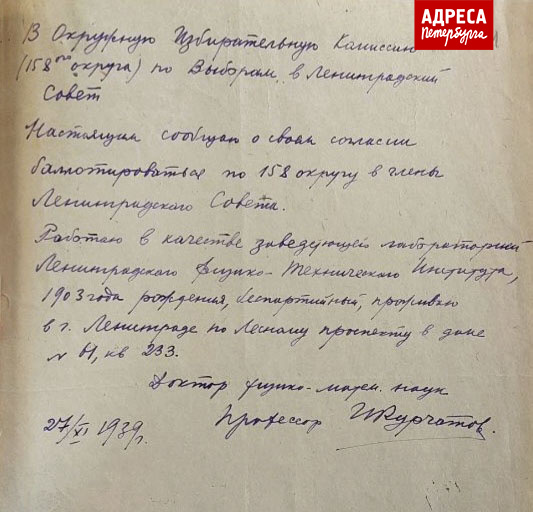 АДРЕСА
Петербурга
В Окружную Избирательную Комиссию
(158го округа) по Выборам в Ленинградский
Совет
Настоящим сообщаю о своем согласии
баллотироваться по 158 округу в члены
Ленинградского Совета.
Работаю в качестве заведующего лабораторией
Ленинградского Физико-Технического Института,
1903 года рождения, беспартийный, проживаю
в г. Ленинграде по Лесному проспекту в доме
№ 61, кв 233.
Доктор физико-матем. наук
Профессор И Курчатов.
27/XI 1939г.